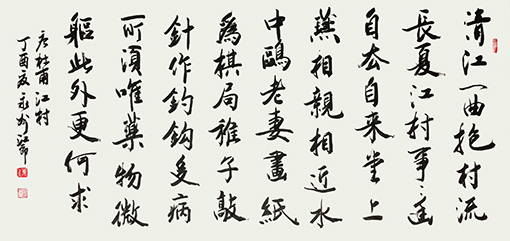 清江一曲抱村流
長夏江村事〻幽
自去自来堂上
燕相親相近水
中鷗老妻畫紙
爲棋局稚子敲
針作釣鈎多病
所須唯藥物微
軀此外更何求
唐杜甫江村
丁酉夏永州